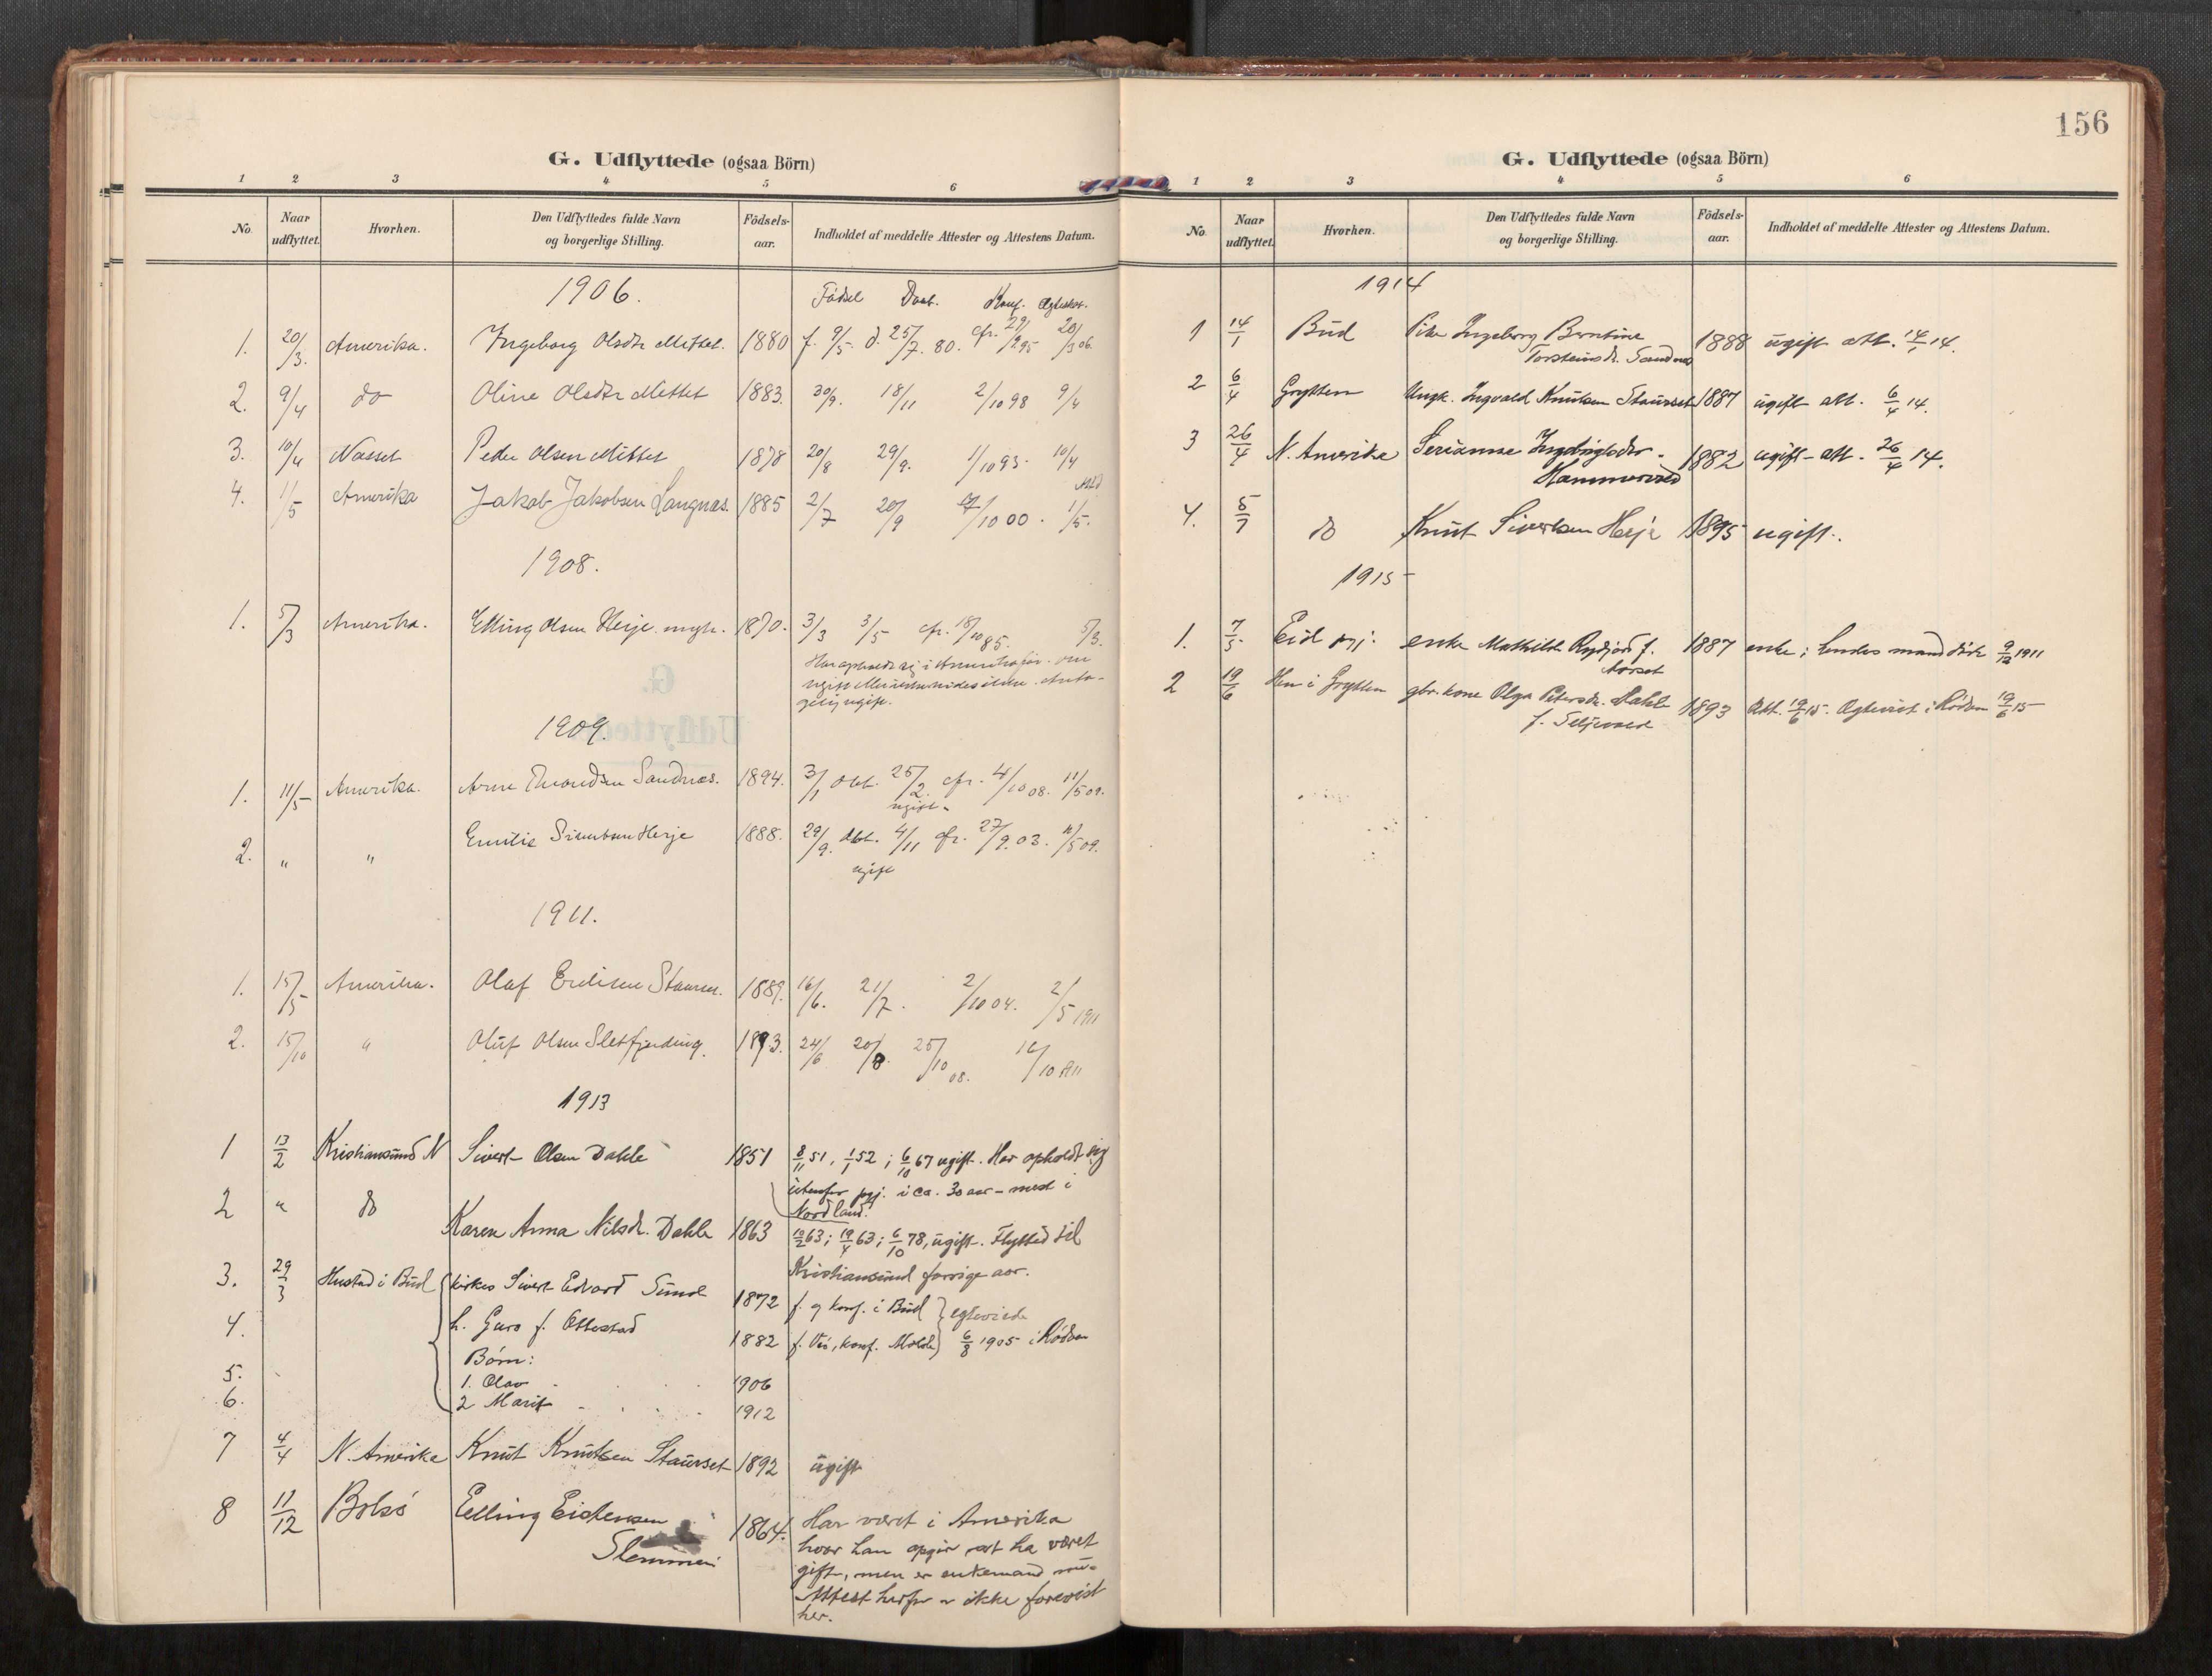 G. Udflyttede (ogsaa Börn)
1 2 3 4 5 6
No. Naar udflyttet. Hvorhen. Den Udflyttedes fulde Navn og borgerlige Stilling. Födsels-aar. Indholdet af meddelte Attester og Attestens Datum.
1906. Födsel Daab. Konf.
1. 20/3. Amerika. Ingeborg Olsdtr Mittet. 1880 f. 9/5. d. 25/7. 80. cfr. 29/9 95 20/3 06
2. 9/4 do Oline Olsdtr Mittet 1883. 30/9. 18/11 2/10 98 9/4
3. 10/4 Nesset Peder Olsen Mittet 1878 20/8 29/9. 1/10 93. 10/4
4. 1/5 Amerika Jakob Jakobsen Langnes. 1885 2/7 20/9 /10 00. 1/5.
1908.
1. 5/3 Amerika. Elling Olsen Herje ungk. 1870. 3/3 3/5 cfr. 18/10 85. 5/3.
Har opholdt sig i Amerika før. om
ugift
ugift.
1909.
1. 11/5 Amerika. Arne Thronsen Sandnes. 1894. 3/1 dbt. 25/2. cfr. 4/10 08. 11/5 09.
ugift.
2. " " Emilie Sivertsen Herje 1888. 29/9. dbt. 4/11 cfr. 27/9. 03. 11/5 09.
ugift
1911.
1. 15/5 Amerika. Olaf Eriksen Staurset. 1889. 16/6. 21/7. 2/10 04. 2/5 1911
2. 15/10 " Oluf Olsen Sletfjerding. 1893. 24/6 20/8. 25/10 08. 16/10 1911
1913
1 13/2 Kristiansund N Sivert Olsen Dahle 1851 8/11 51, 1/1 52; 6/10 67 ugift. Har opholdt sig
utenfor pgj. i ca. 30 aar – mest i
Nordland.
2 " do Karen Anna Nilsdr. Dahle 1863 10/2 63; 19/4 63; 6/10 78, ugift. Flytted til
Kristiansund forrige aar.
3. 29/3 Hustad i Bud kirkes. Sivert Edvard Sunde 1872 f. og konf. i Bud } egteviede
4. h. Guro f. Ottestad 1882 f. Veö, konf. Molde } 6/8 1905 i Rödven
Börn:
5. 1. Olav 1906
6. 2 Marit 1912
7 4/4 N. Amerika Knut Knutsen Staurset 1892 ugift
8 11/12 Bolsö Elling Eidensen 1864. Har været i Amerika
Slemmen hvor han opgir at ha været
gift, men er enkemand nu.
Attest herfor er ikke forevist
her.
156
G. Udflyttede (ogsaa Börn)
1 2 3 4 5 6
No. Naar udflyttet. Hvorhen. Den Udflyttedes fulde Navn og borgerlige Stilling. Födsels-aar. Indholdet af meddelte Attester og Attestens Datum.
1914
1 14/1 Bud Pike Ingeborg Berntine 1888 ugift att. 14/1 14.
Torsteinsdr. Sandnes
2 6/4 Grytten Ungk. Ingvald Knutsen Staurset 1887 ugift att. 6/4 14.
3 26/4 N. Amerika Serianne 1882 ugift – att. 26/4 14.
Hammervold
4. 5/7 do Knut Sivertsen Herje 1895 ugift.
1915
1. 7/5 Eid pgj. enke Mathilde Rydjord f. 1887 enke; hendes mand död 9/12 1911
Aarset
2 19/6 Hen i Grytten gbr. kone Olga Petersdr. Dahle 1893 Att. 19/6 15. Egteviet i Rödven 19/6 15
f. Seljevold